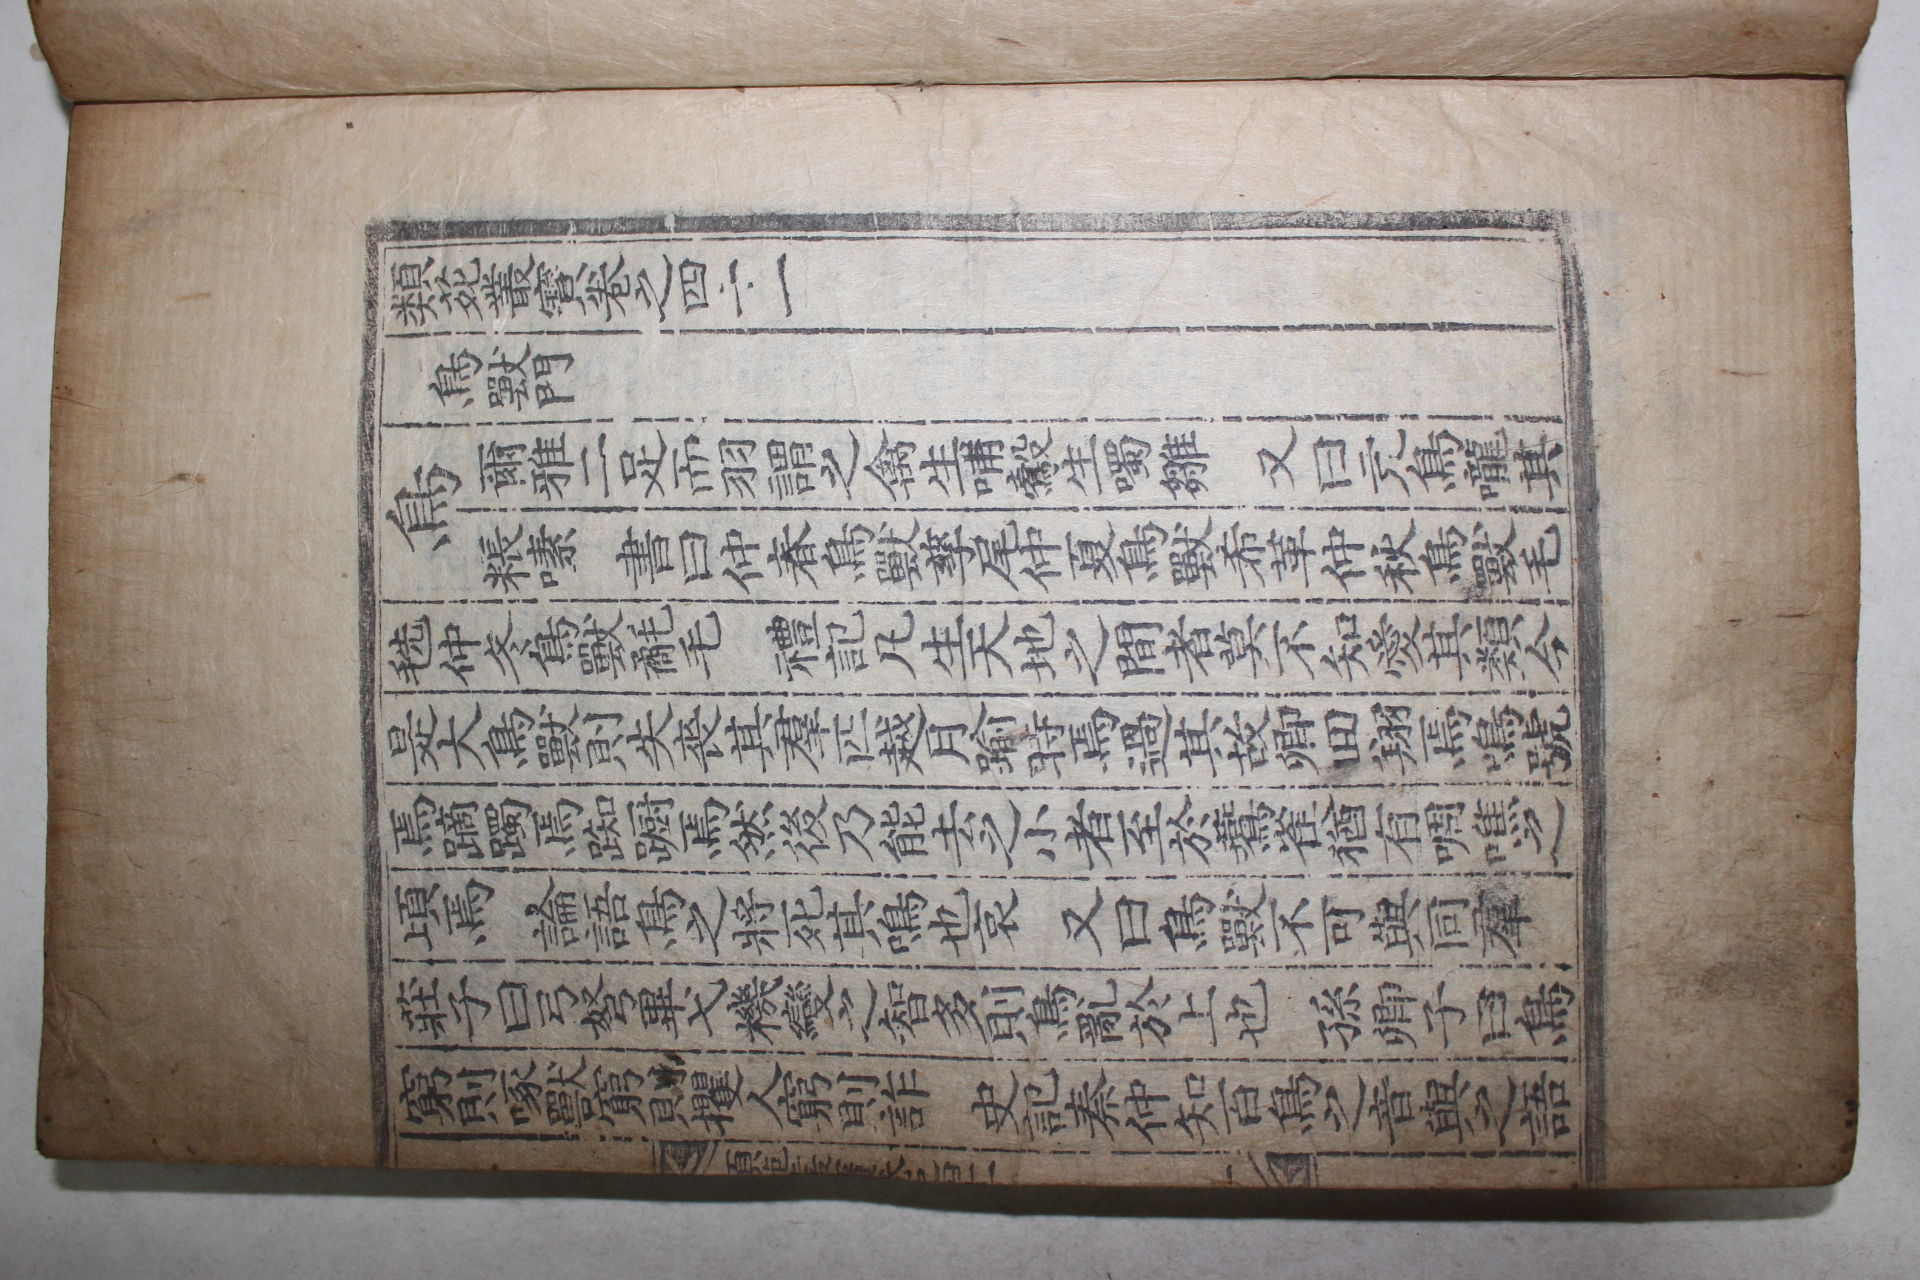 類苑叢寶卷之四十一
鳥獸門
鳥
爾雅二足而羽謂之禽生哺鷇生噣雛 又曰亢鳥嚨其
粻嗉 書曰仲春鳥獸孳尾仲夏鳥獸希革仲秋鳥獸毛
毨仲冬鳥獸氄毛 禮記凡生天地之間者莫不知愛其類今
是大鳥獸則失喪其羣匹越月踰時焉過其故鄕囬翔焉鳴號
焉蹢躅焉踟躕焉然後乃能去之小者至於鷰雀猶有啁噍之
頃焉 論語鳥之將死其鳴也哀 又曰鳥獸不可與同羣
莊子曰弓弩畢弋機變之智多則鳥亂於上也 孫卿子曰鳥
窮則啄獸窮則攫人窮則詐 史記秦仲知百鳥之音與之語
類苑叢寶卷之四十一